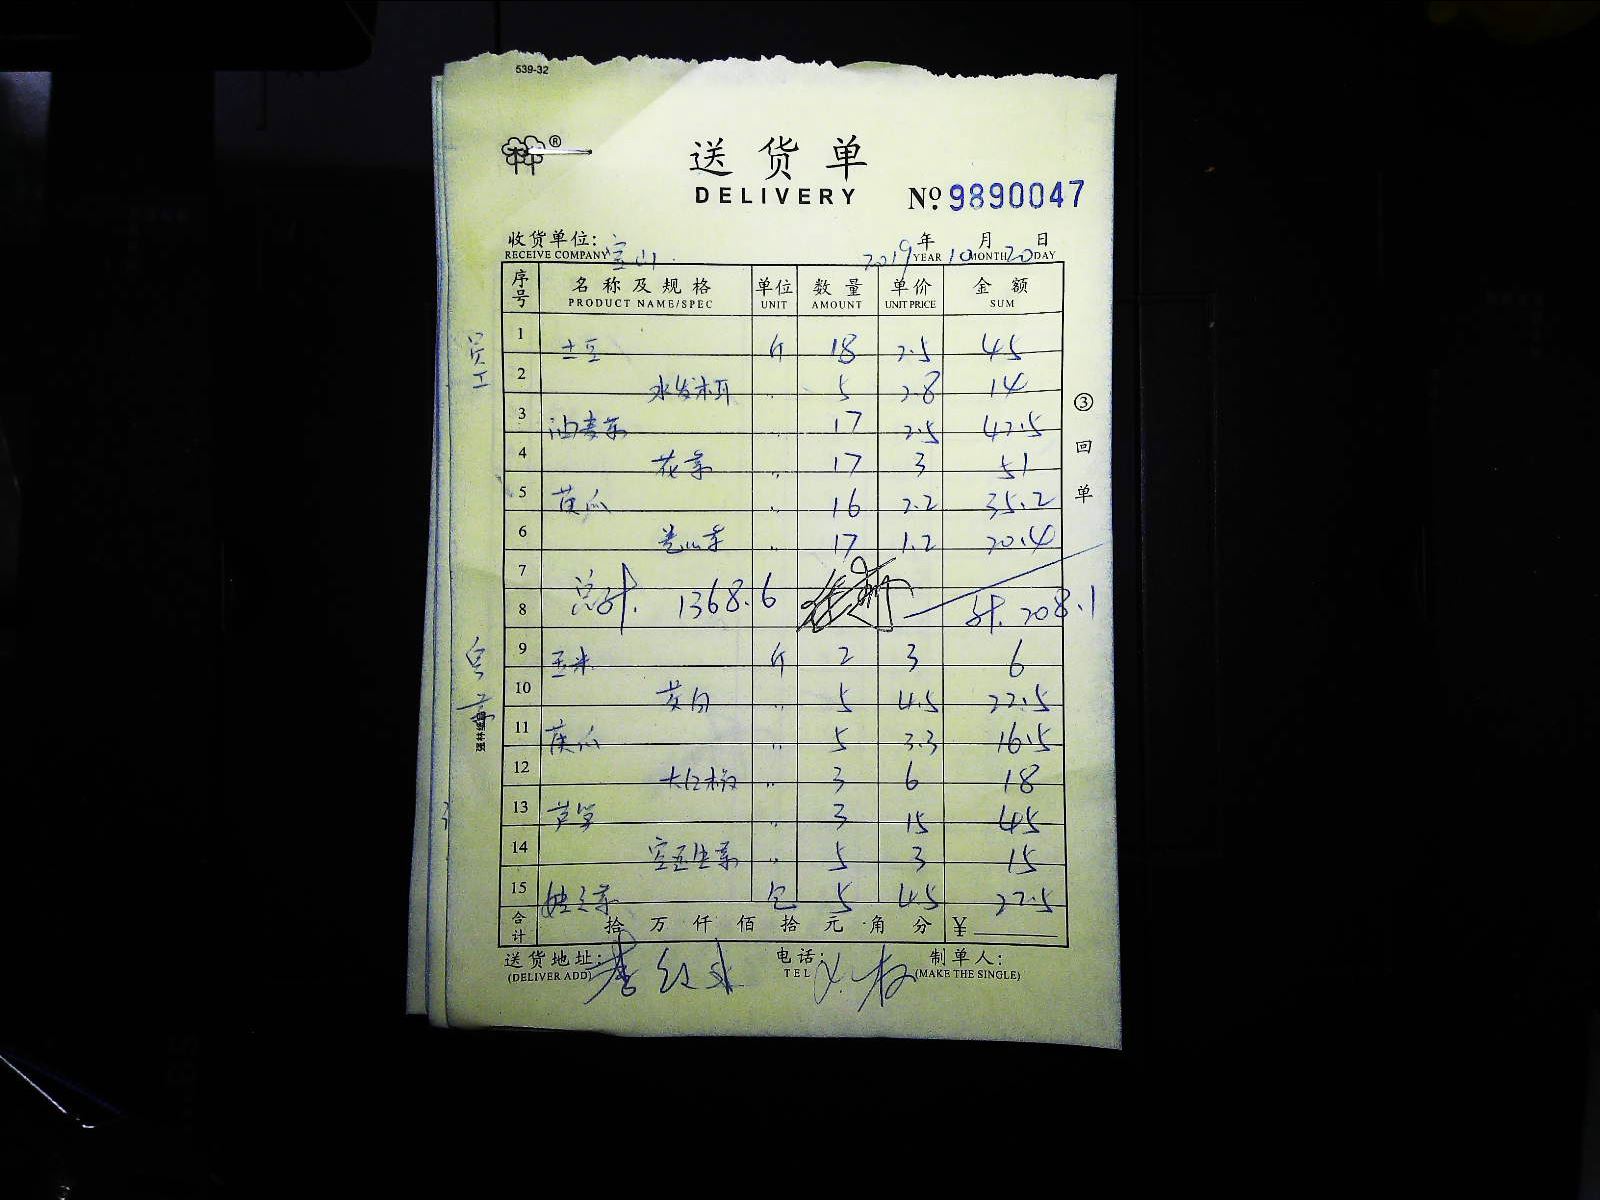 539-32
®
送货单
DELIVERY
No. 9890047
收货单位: 宝山
RECEIVE COMPANY
2019年 10月 20日
YEAR MONTH DAY
序号 名称及规格 单位 数量 单价 金额
PRODUCT NAME/SPEC UNIT AMOUNT UNIT PRICE SUM
员工
1 土豆 斤 18 2.5 45
2 水发木耳 〃 5 2.8 14
3 油麦菜 〃 17 2.5 42.5
4 花菜 〃 17 3 51
5 黄瓜 〃 16 2.2 35.2
6 〃 17 1.2 20.4
7
8 总计. 1368.6 计. 208.1
9 玉米 斤 2 3 6
10 茭白 〃 5 4.5 22.5
11 黄瓜 〃 5 3.3 16.5
12 大红椒 〃 3 6 18
13 芦笋 〃 3 15 45
14 生菜 〃 5 3 15
15 娃娃菜 包 5 4.5 22.5
合计 拾 万 仟 佰 拾 元 角 分 ¥
送货地址: 电话: 制单人:
(DELIVER ADD) TEL (MAKE THE SINGLE)
③回单